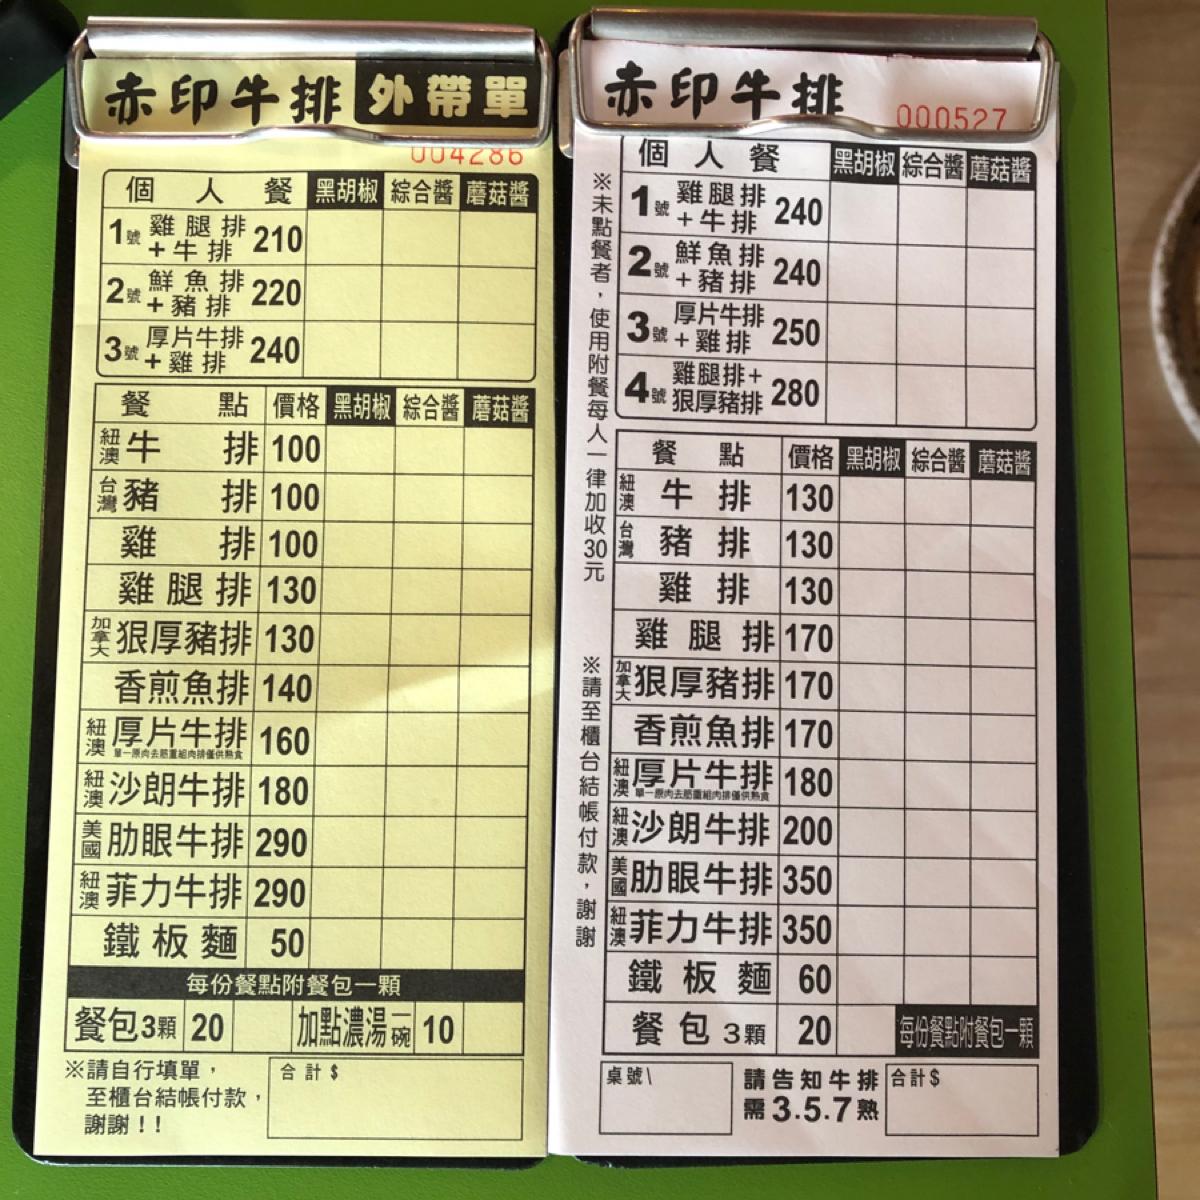 赤印牛排 外帶單
004286
個人餐 黑胡椒 綜合醬 蘑菇醬
1號 雞腿排+牛排 210
2號 鮮魚排+豬排 220
3號 厚片牛排+雞排 240
餐點 價格 黑胡椒 綜合醬 蘑菇醬
紐澳 牛排 100
台灣 豬排 100
雞排 100
雞腿排 130
加拿大 狠厚豬排 130
香煎魚排 140
紐澳 厚片牛排 160
單一原肉去筋重組肉排僅供熟食
紐澳 沙朗牛排 180
美國 肋眼牛排 290
紐澳 菲力牛排 290
鐵板麵 50
每份餐點附餐包一顆
餐包3顆 20 加點濃湯一碗 10
※請自行填單，
至櫃台結帳付款，
謝謝!!
合計$
赤印牛排
000527
※未點餐者，使用附餐每人一律加收30元
※請至櫃台結帳付款，謝謝
個人餐 黑胡椒 綜合醬 蘑菇醬
1號 雞腿排+牛排 240
2號 鮮魚排+豬排 240
3號 厚片牛排+雞排 250
4號 雞腿排+狠厚豬排 280
餐點 價格 黑胡椒 綜合醬 蘑菇醬
紐澳 牛排 130
台灣 豬排 130
雞排 130
雞腿排 170
加拿大 狠厚豬排 170
香煎魚排 170
紐澳 厚片牛排 180
單一原肉去筋重組肉排僅供熟食
紐澳 沙朗牛排 200
美國 肋眼牛排 350
紐澳 菲力牛排 350
鐵板麵 60
餐包3顆 20 每份餐點附餐包一顆
桌號\
請告知牛排
需3.5.7熟
合計$